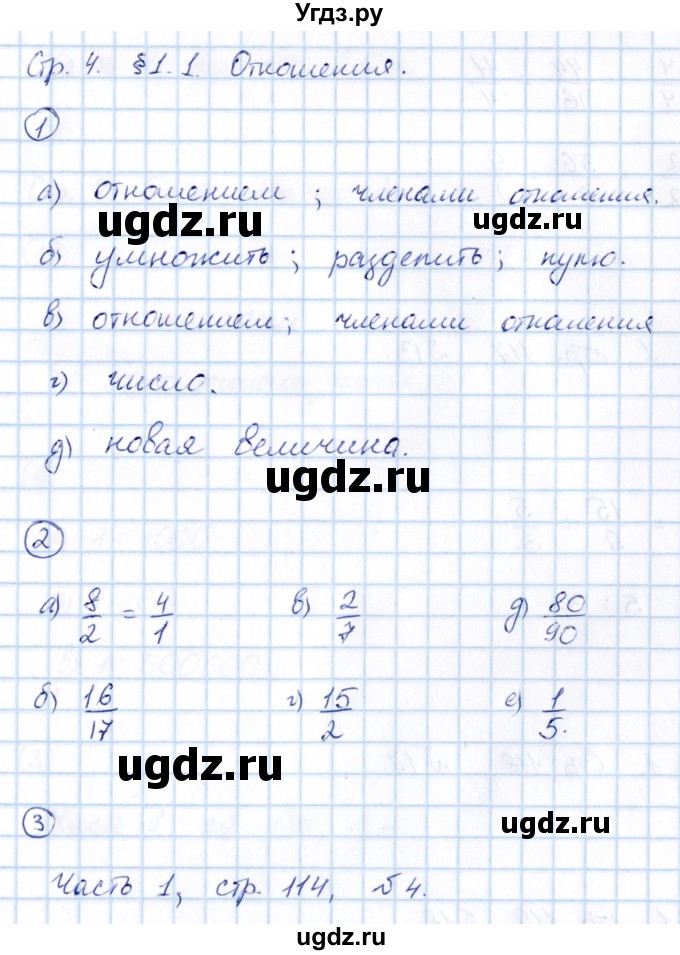 Угдз.ру
Стр. 4. §1.1. Отношения.
1
а) отношением; членами отношения.
ugdz.ru ugdz.ru
б) умножить; разделить; нулю.
в) отношением; членами отношения
г) число.
д) новая величина.
ugdz.ru
2
а) 8/2 = 4/1 в) 2/7 д) 80/90
б) 16/17 г) 15/2 е) 1/5.
ugdz.ru
3
ugdz.ru
Часть 1, стр. 114, №4.
ugdz.ru